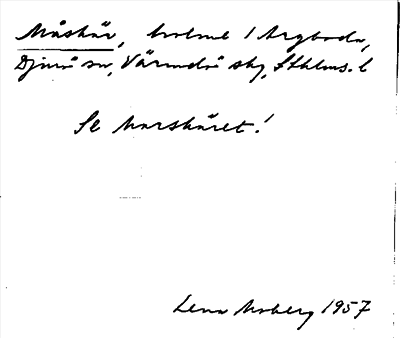 Måskär, holme iArgboda,
Djurö sn, Värmdö skg, Sthlms. l
Se Marskäret!
Lena Moberg 1957